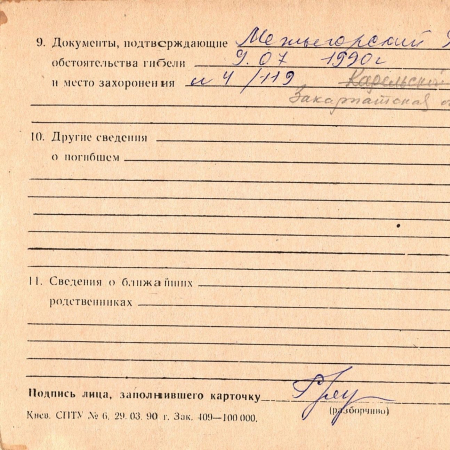 9. Документы, подтверждающие Межгорский
обстоятельства гибели 9.07 1990г
и место захоронения и 4/119
Закарпатская о
10. Другие сведения
о погибшем
11. Сведения о ближайших
родственниках
Подпись лица, заполнившего карточку
(разборчиво)
Киев. СПТУ № 6. 29. 03. 90 г. Зак. 409—100 000.